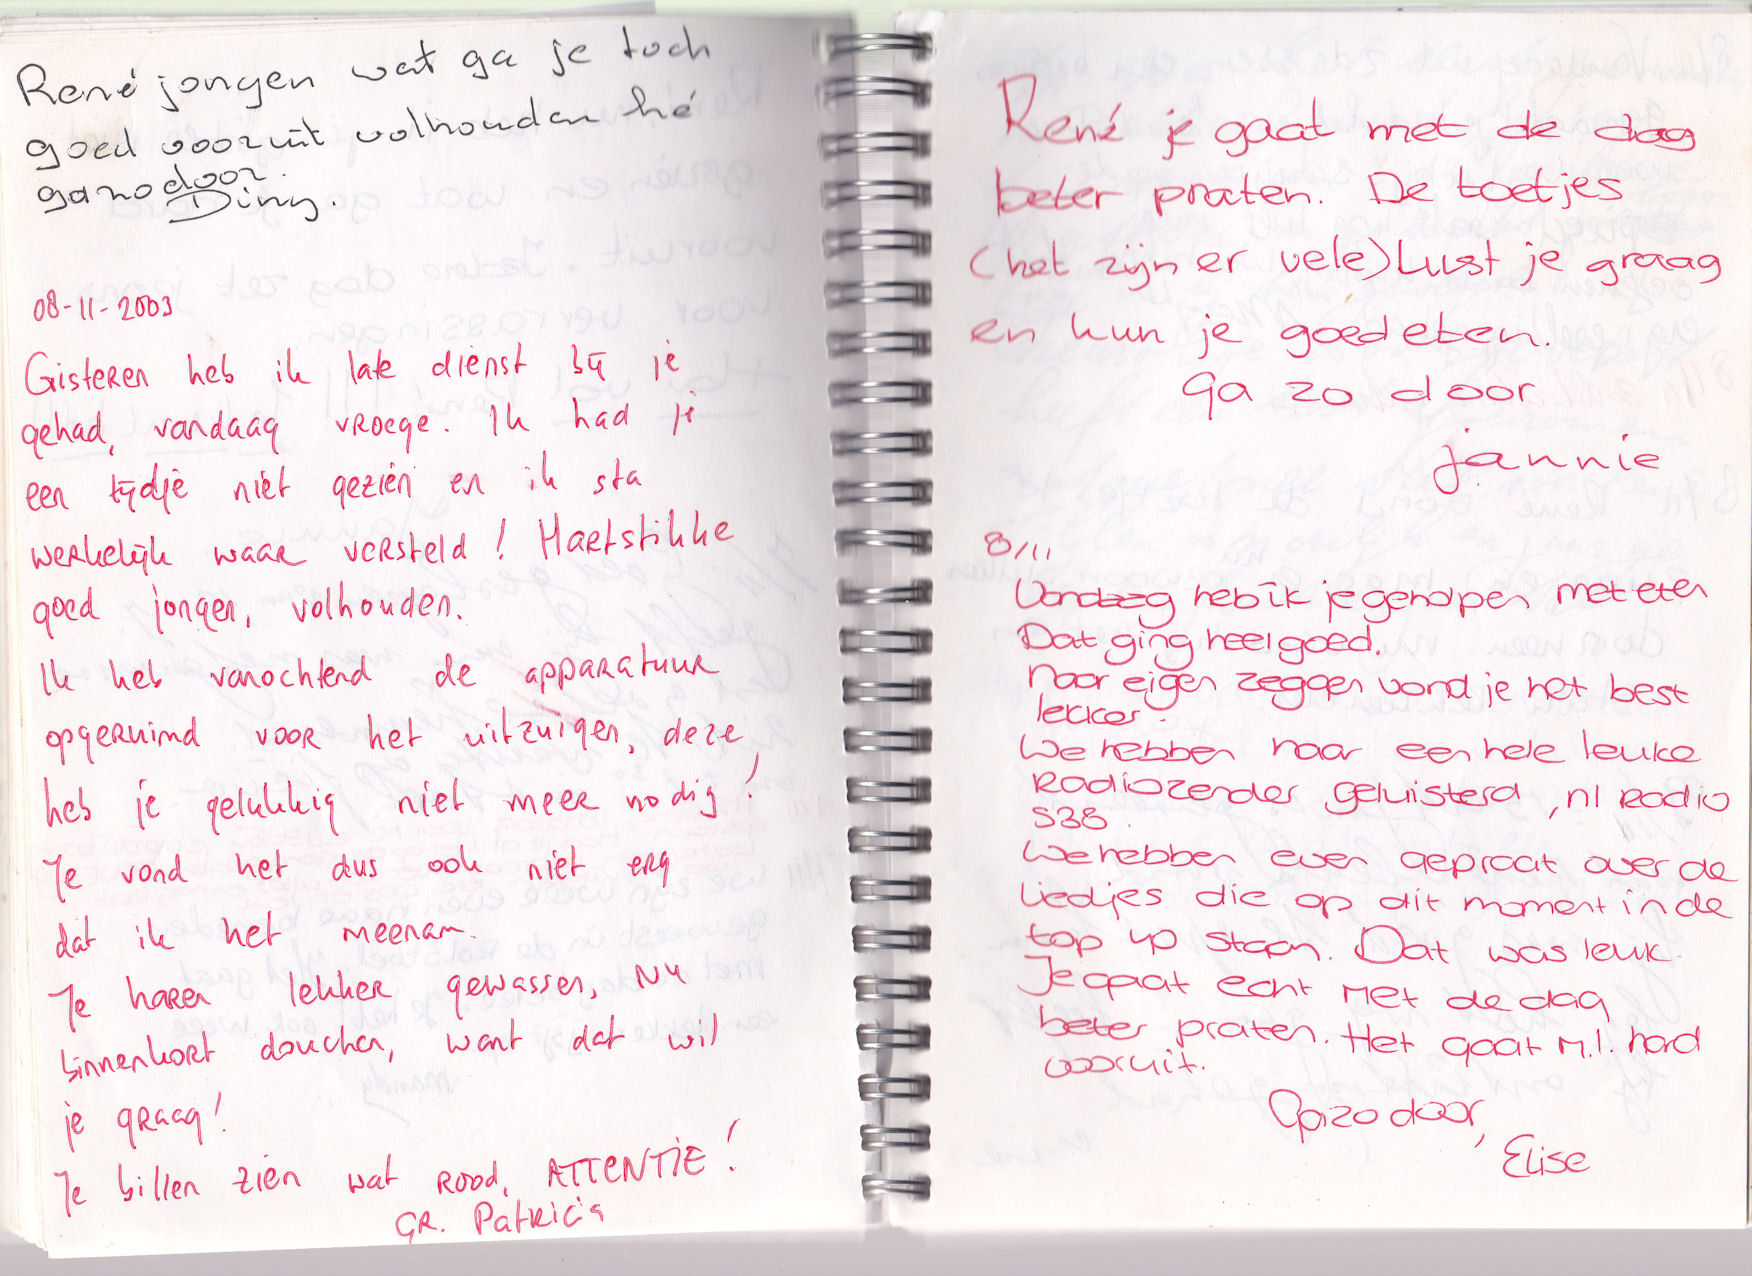 René jongen wat ga je toch
goed vooruit volhouden hé
ga zo door.
Diny.
08-11-2003
Gisteren heb ik late dienst bij je
gehad, vandaag vroege. Ik had je
een tijdje niet gezien en ik sta
werkelijk waar versteld! Hartstikke
goed jongen, volhouden.
Ik heb vanochtend de apparatuur
opgeruimd voor het uitzuigen, deze
heb je gelukkig niet meer nodig!
Je vond het dus ook niet erg
dat ik het meenam.
Je haren lekker gewassen, nu
binnenkort douchen, want dat wil
je graag!
Je billen zien wat rood, ATTENTIE!
GR. Patricia
René je gaat met de dag
beter praten. De toetjes
(het zijn er vele) Lust je graag
en kun je goed eten.
Ga zo door
jannie
8/11
Vandaag heb ik je geholpen met eten
Dat ging heel goed.
Naar eigen zeggen vond je het best
lekker.
We hebben naar een hele leuke
Radiozender geluisterd, nl Radio
538.
We hebben even gepraat over de
liedjes die op dit moment in de
top 40 staan. Dat was leuk.
Je gaat echt met de dag
beter praten. Het gaat n.l. hard
vooruit.
Ga zo door,
Elise